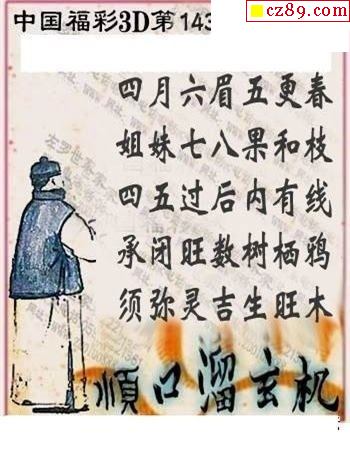 cz89.com
中国福彩3D第143
四月六眉五更春
姐妹七八果和枝
四五过后内有线
承闭旺数树栖鸦
须弥灵吉生旺木
順口溜玄机